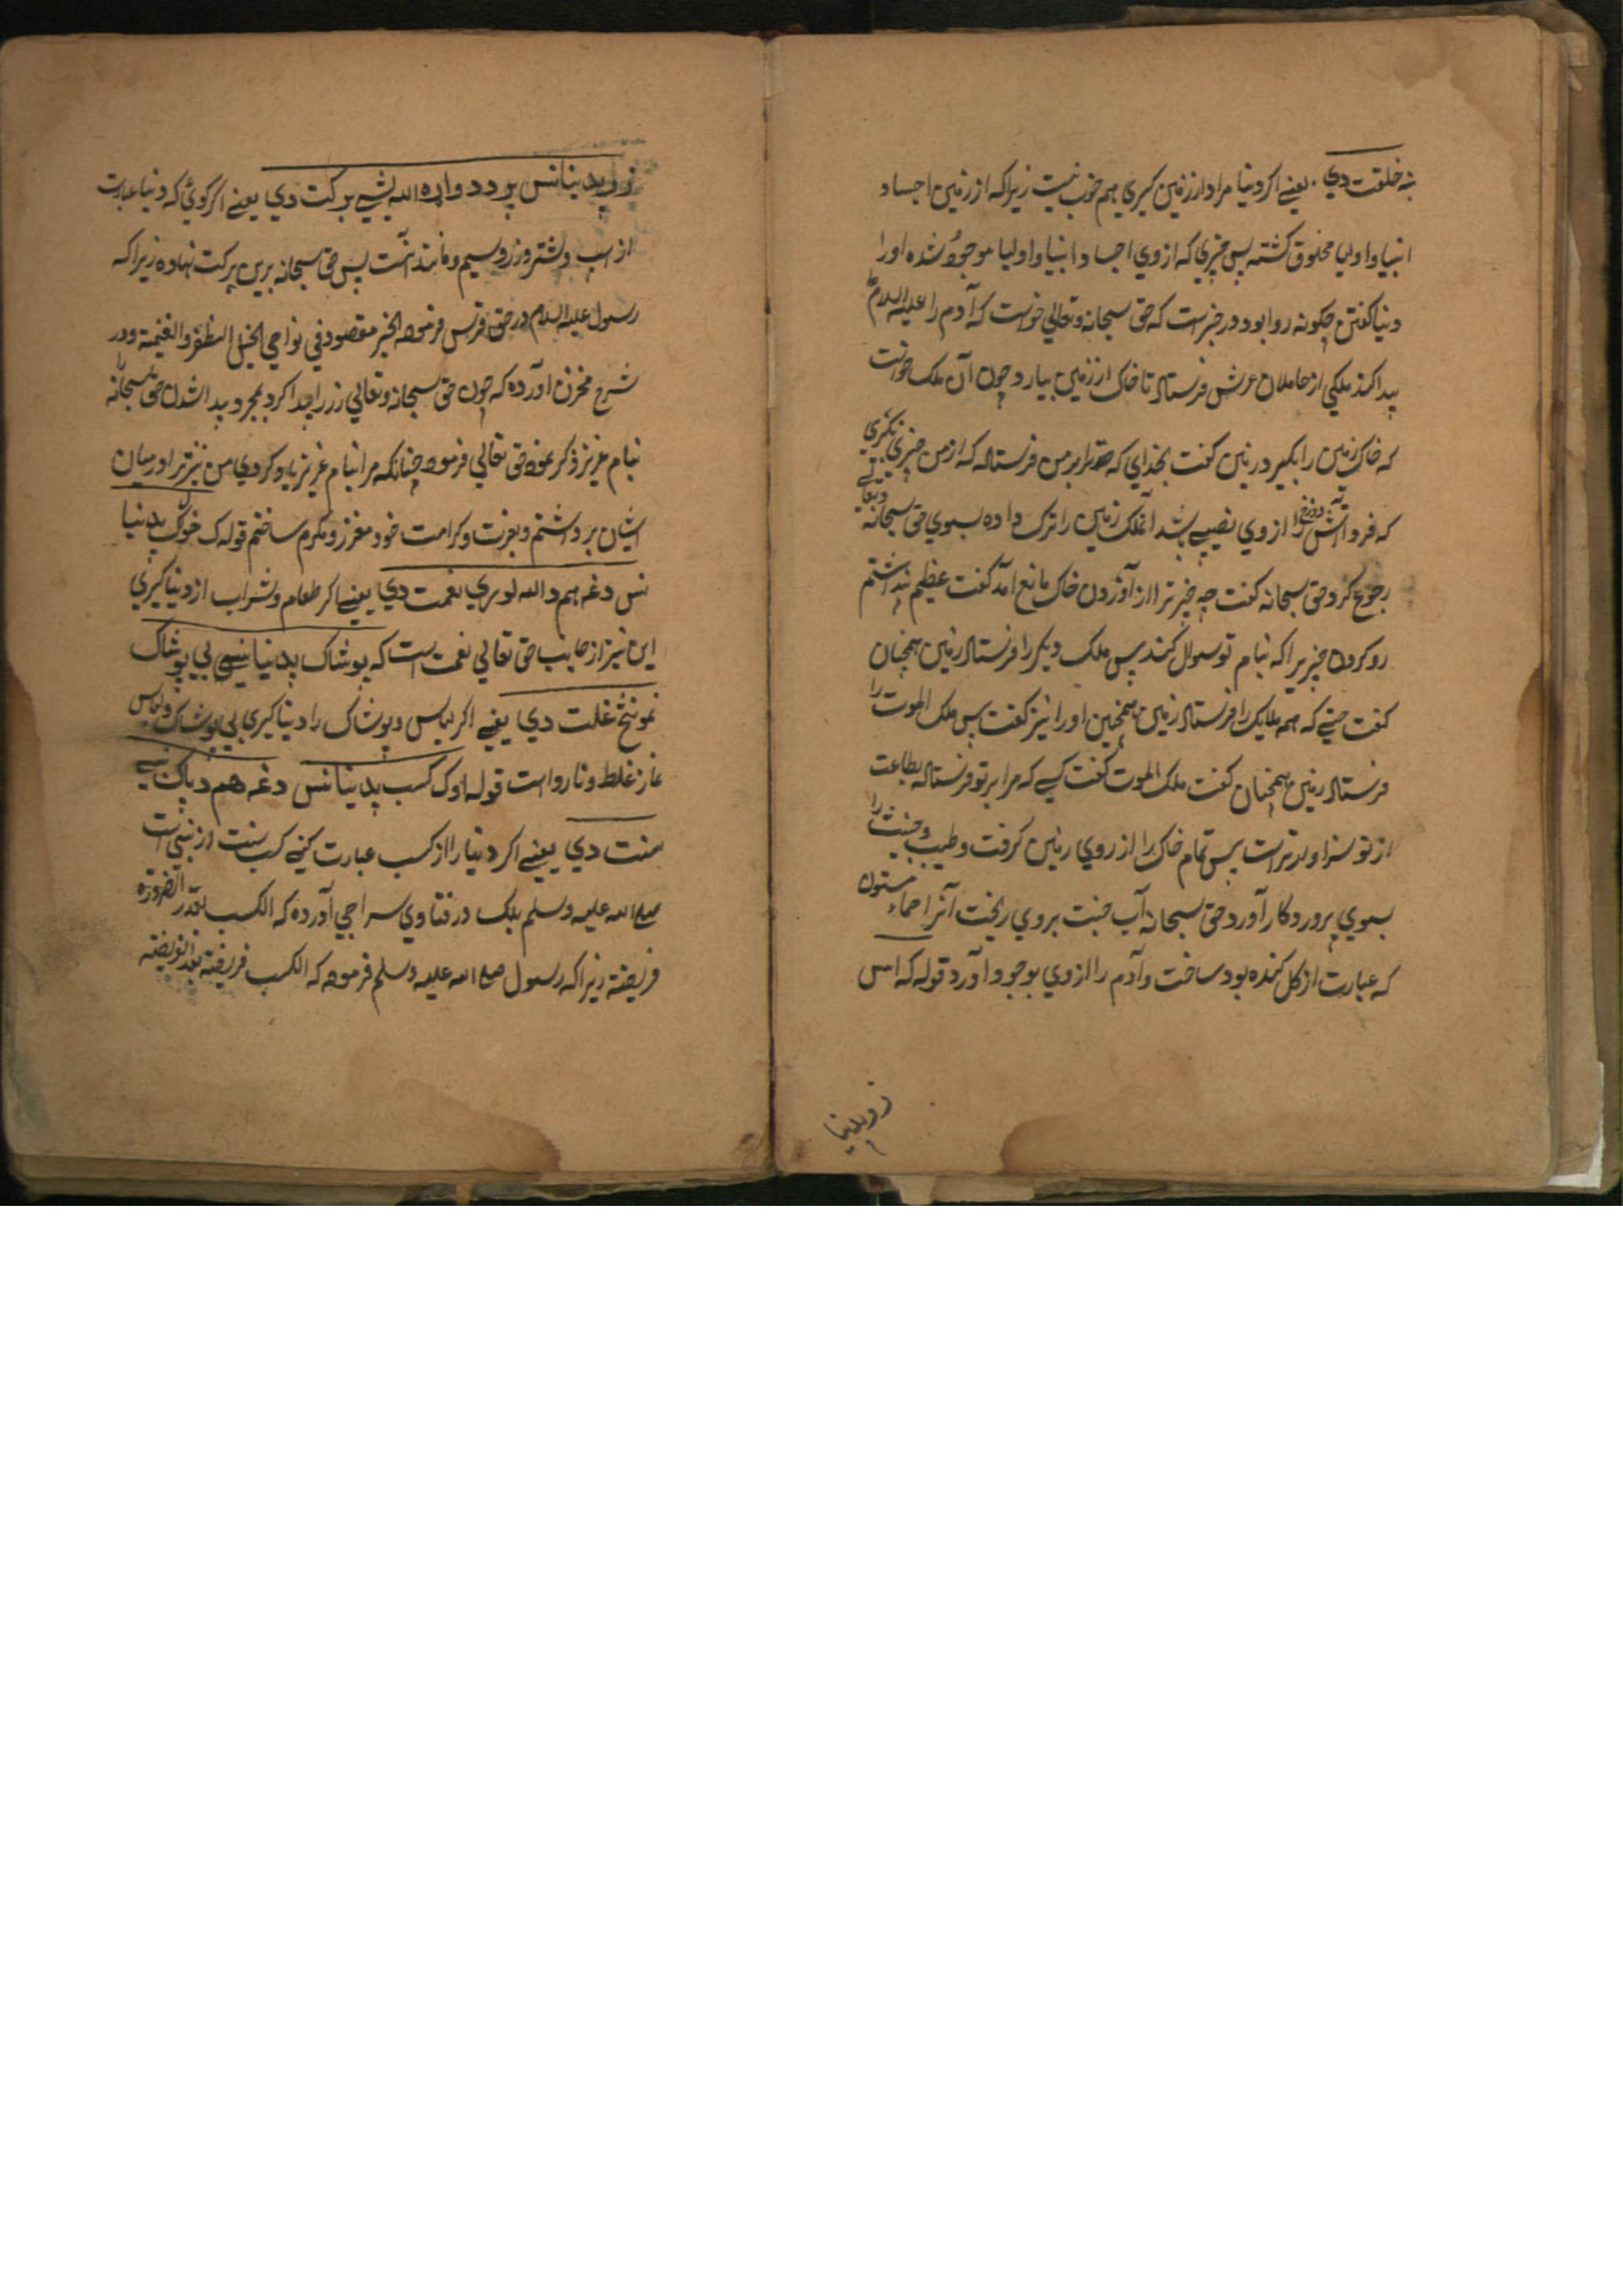 ښه خلقت دي یعنے اکر دنیا مراد از زمین کیري هم خوب نیست زیراکه از زمین اجساد
انبیا و اولیا مخلوق کشته پس چیزي که از وي اجساد انبیا و اولیا موجود شده او را
دنیا کفتن چکونه روا بود در خبر است که حق سبحانه و تعالی خواست که آدم را علیه السلام
پیدا کند ملکي از حاملان عرش فرستاد تا خاک از زمین بیارد چون آن ملک خواست
که خاک زمین را بکیرد زمین کفت بخداي که ترا بر من فرستاد که از من چیزي نکیري
که فردا آتش دوزخ را از وي نصیبے باشد آن ملک زمین را ترک داده بسوي حق سبحانه و تعالے
رجوع کرد حق سبحانه کفت چه چیز ترا از آوردن خاک مانع آمد کفت عظیم پنداشتم
رد کردن چیزیرا که بنام تو سوال کند پس ملک دیکر را فرستاد زمین همچنان
کفت حتے که همه ملایک را فرستاد زمین همچنین او را نیز کفت پس ملک الموت را
فرستاد زمین همچنان کفت ملک الموت کفت کسے که مرا بر تو فرستاد بطاعت
از تو سزاوارتر است پس تمام خاک را از روي زمین کرفت و طیب و خبیث را
بسوي پروردکار آورد حق سبحانه آب جنت بروي ریخت آنرا حماء مسنون
که عبارت از کل کنده بود ساخت و آدم را از وي بوجود آورد قوله که اس
زر پدنیا
زر پدنیا نس پر دد واړه الله یښے برکت دي یعنے اکر کوئي که دنیا عبارت
از اسپ و شتر و زر و سیم و مانند آنست پس حق سبحانه برین برکت نهاده زیراکه
رسول علیه السلام در حق فرس فرموده الخیر معقود في نواصي الخیل الظفر و الغنیمة و در
شرح مخزن آورده که چون حق سبحانه و تعالی زر را پیدا کرد بمجرد پیدا شدن حق سبحانه
بنام عزیز ذکر نمود حق تعالی فرمود چنانکه مرا بنام عزیز یاد کردي من نیز ترا در میان
ایشان برداشتم و بعزت و کرامت خود معزز و مکرم ساختم قوله ک خوراک پدنیا
نس دغه هم د الله لوري نعمت دي یعنے اکر طعام و شراب از دنیا کیري
این نیز از جانب حق تعالی نعمت است که پوشاک پدنیا نسي بي پوشاک
نمونځ غلت دي یعنے اکر لباس و پوشاک را دنیا کیري بي پوشاک و لباس
نماز غلط و نارواست قوله اوک کسب پدنیا نس دغه هم د پاک نبي
سنت دي یعنے اکر دنیا را از کسب عبارت کنے کسب سنت از نبي است
صلے الله علیه وسلم بلک در فتاوي سراجي آورده که الکسب بقدر الضرورة
فریضة زیراکه رسول صلے الله علیه وسلم فرموده که الکسب فریضة بعد الفریضة